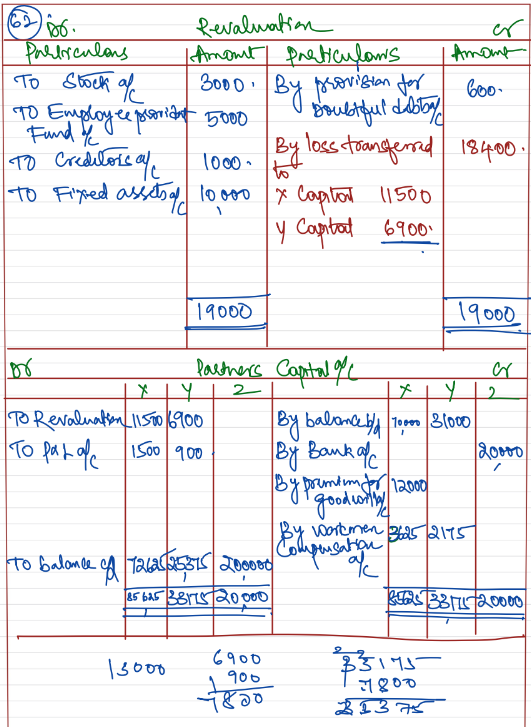 62 Dr. Revaluation Cr
Particulars Amount Particulars Amount
To Stock a/c 3000. By provision for Doubtful debts a/c 600.
To Employees provident Fund a/c 5000
To Creditors a/c 1000. By loss transferred to 18400.
To Fixed assets a/c 10,000 X Capital 11500
Y Capital 6900.
19000 19000
Dr Partners Capital a/c Cr
X Y Z X Y Z
To Revaluation 11500 6900 By balance b/d 70000 31000
To P&L a/c 1500 900. By Bank a/c 20000
By premium for goodwill a/c 12000
By workmen Compensation a/c 3625 2175
To balance c/d 72625 25375 200000
85625 33175 20,000 85625 33175 20000
13000 6900 33175
900 7800
7800 25375